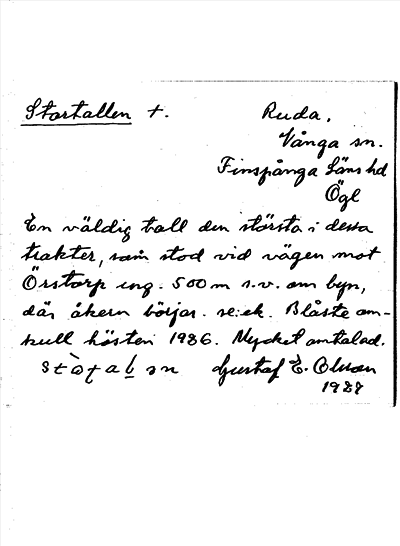 Stortallen +. Ruda.
Vånga sn.
Finspånga läns hd
Ögl
En väldig tall den största i dessa
trakter, som stod vid vägen mot
Örstorp ung. 500 m s.v. om byn,
där åkern börjar. se:ek. Blåste om-
kull hösten 1926. Mycket omtalad.
Gustaf E. Olsson
1927